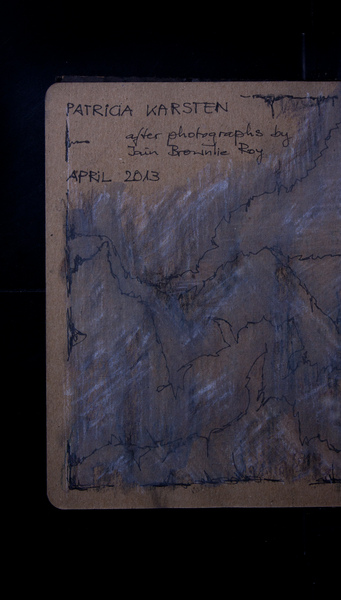 PATRICIA KARSTEN
after photographs by
Iain Brownlie Roy
APRIL 2013